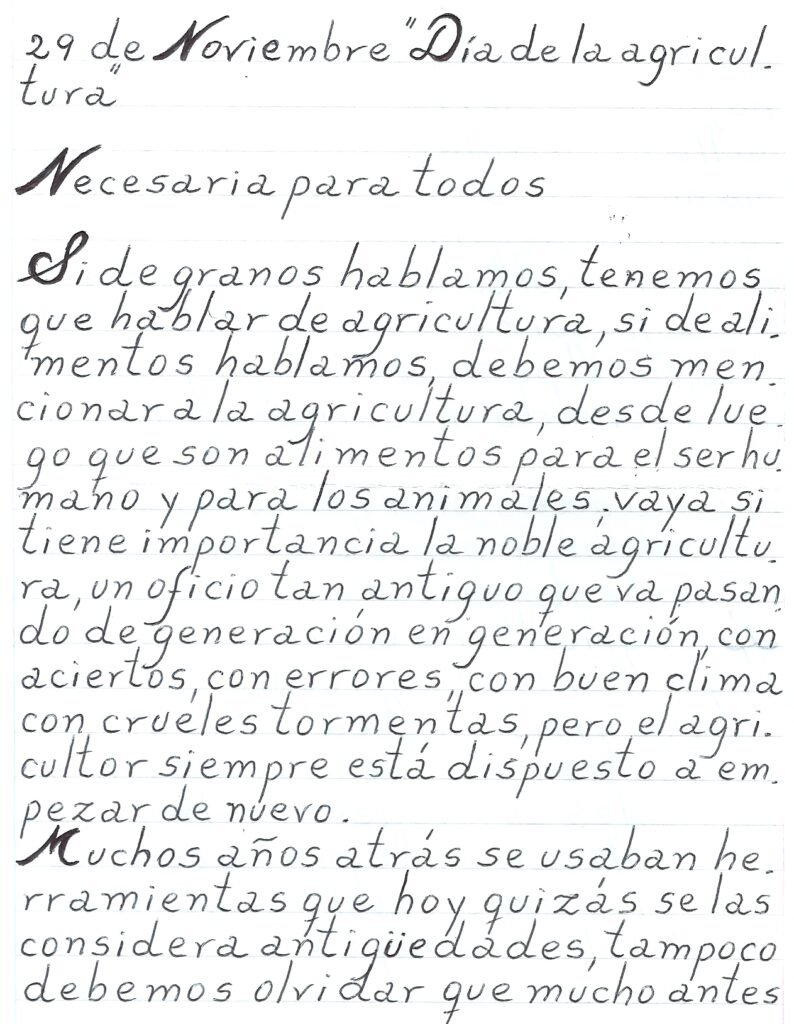 29 de Noviembre "Día de la agricul.
tura"
Necesaria para todos
Si de granos hablamos, tenemos
que hablar de agricultura, si de ali.
mentos hablamos, debemos men.
cionar a la agricultura, desde lue.
go que son alimentos para el ser hu.
mano y para los animales, vaya si
tiene importancia la noble agricultu.
ra, un oficio tan antiguo que va pasan.
do de generación en generación, con
aciertos, con errores, con buen clima
con crueles tormentas, pero el agri.
cultor siempre está dispuesto a em.
pezar de nuevo.
Muchos años atrás se usaban he.
rramientas que hoy quizás se las
considera antigüedades, tampoco
debemos olvidar que mucho antes